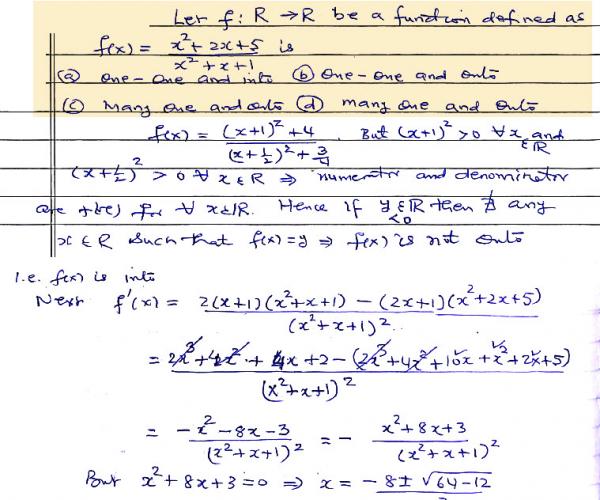 Let f: R → R be a function defined as
f(x) = (x² + 2x + 5)/(x² + x + 1) is
(a) One-one and into (b) One-one and onto
(c) Many one and onto (d) many one and onto
f(x) = ((x+1)² + 4)/((x+½)² + 3/4). But (x+1)² > 0 ∀ x ∈ R and
(x+½)² > 0 ∀ x ∈ R ⇒ numerator and denominator
are +(ve) for ∀ x ∈ R. Hence if y ∈ R <0 then ∄ any
x ∈ R such that f(x) = y ⇒ f(x) is not onto
i.e. f(x) is into
Next f'(x) = (2(x+1)(x²+x+1) − (2x+1)(x²+2x+5))/(x²+x+1)²
= (2x³ + 4x² + 4x + 2 − (2x³ + 4x² + 10x + x² + 2x + 5))/(x²+x+1)²
= (−x² − 8x − 3)/(x²+x+1)² = − (x² + 8x + 3)/(x²+x+1)²
But x² + 8x + 3 = 0 ⇒ x = −8 ± √64−12